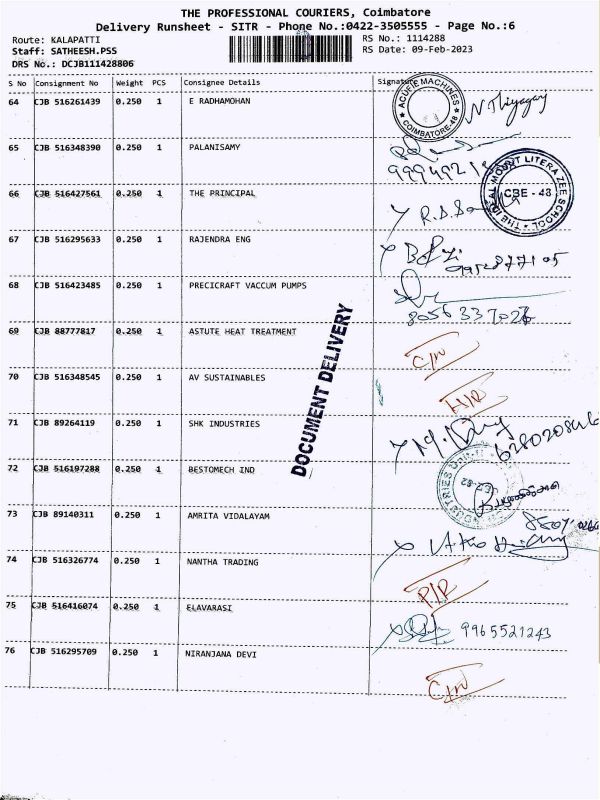 THE PROFESSIONAL COURIERS, Coimbatore
Delivery Runsheet - SITR - Phone No.:0422-3505555 - Page No.:6
Route: KALAPATTI
RS No.: 1114288
Staff: SATHEESH.PSS
RS Date: 09-Feb-2023
DRS No.: DCJB111428806
S No Consignment No Weight PCS Consignee Details Signature
64 CJB 516261439 0.250 1 E RADHAMOHAN
ACUFIE MACHINES COIMBATORE-48
N Thiyagaraj
65 CJB 516348390 0.250 1 PALANISAMY
66 CJB 516427561 0.250 1 THE PRINCIPAL
THE IDEAL MOUNT LITERA ZEE SCHOOL CBE - 48
67 CJB 516295633 0.250 1 RAJENDRA ENG
68 CJB 516423485 0.250 1 PRECICRAFT VACCUM PUMPS
8056337026
69 CJB 88777817 0.250 1 ASTUTE HEAT TREATMENT
DOCUMENT DELIVERY
70 CJB 516348545 0.250 1 AV SUSTAINABLES
71 CJB 89264119 0.250 1 SHK INDUSTRIES
72 CJB 516197288 0.250 1 BESTOMECH IND
73 CJB 89140311 0.250 1 AMRITA VIDALAYAM
74 CJB 516326774 0.250 1 NANTHA TRADING
P/R
75 CJB 516416074 0.250 1 ELAVARASI
9965521243
76 CJB 516295709 0.250 1 NIRANJANA DEVI